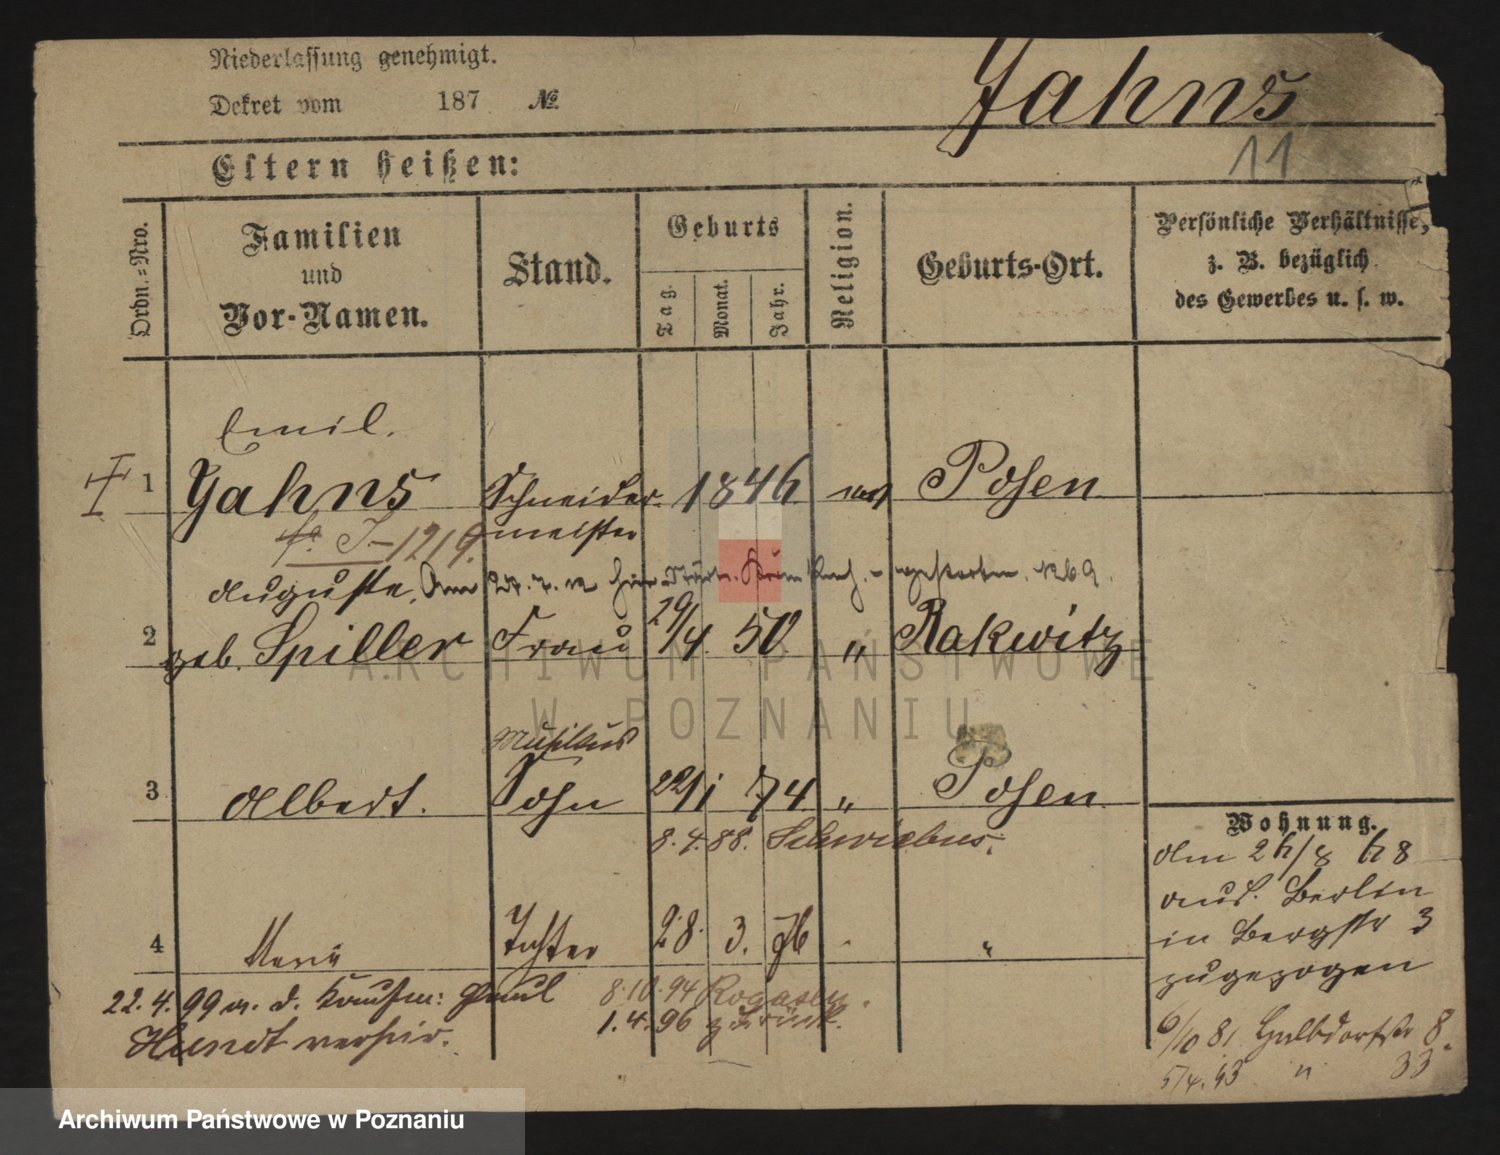 Niederlassung genehmigt.
Dekret vom 187 №
Jahns
11
Eltern heißen:
Ordn.-Nro.
Familien
und
Vor-Namen.
Stand.
Geburts
Tag.
Monat.
Jahr.
Religion.
Geburts-Ort.
Persönliche Verhältnisse,
z. B. bezüglich
des Gewerbes u. s. w.
Emil.
1 Jahns Schneider- 1846 Posen
meister
1219.
Auguste,
2 geb. Spiller Frau 29/4. 50 " Rakwitz
Musikus
3 Albert. Sohn 22/1 74 " Posen
8.4.88. Schwiebus.
Wohnung.
Am 26/8 68
aus Berlin
in Bergstr 3
zugezogen
4 Maria Tochter 28. 3. 76 "
22.4.99 m. d. Kaufm: Paul
8.10.94 Rogasen.
Hundt verheir.
1.4.96 zurück.
6/10 81 Halbdorfstr 8.
5/4.93 " 33
ARCHIWUM PAŃSTWOWE
W POZNANIU
Archiwum Państwowe w Poznaniu